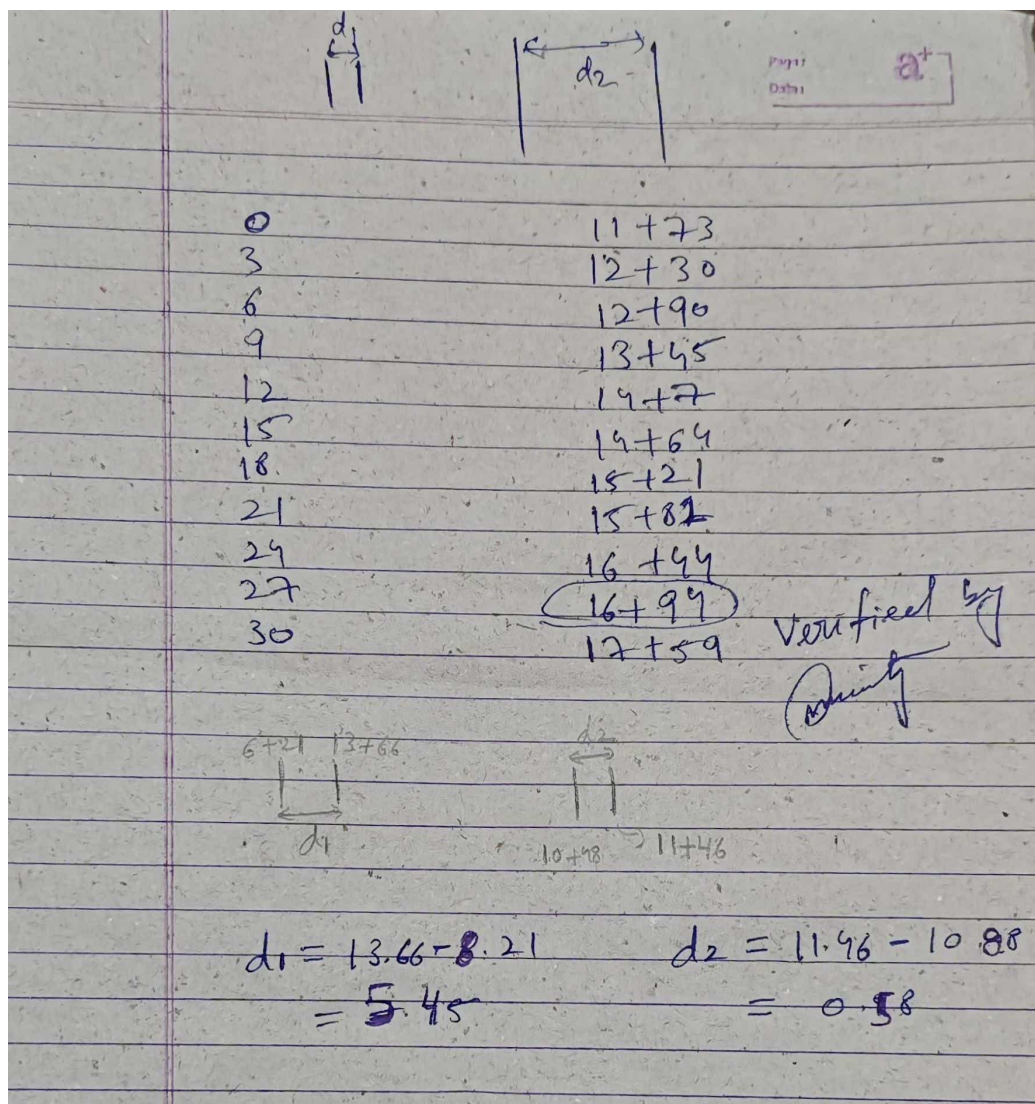 d1
d2
Page:
Date:
a+
0 11+73
3 12+30
6 12+90
9 13+45
12 14+7
15 14+64
18. 15+21
21 15+82
24 16+44
27 16+94
30 17+59
Verified by
6+21 13+66 d2
d1 10+48 11+46
d1 = 13.66-8.21 d2 = 11.46 - 10.88
= 5.45 = 0.58